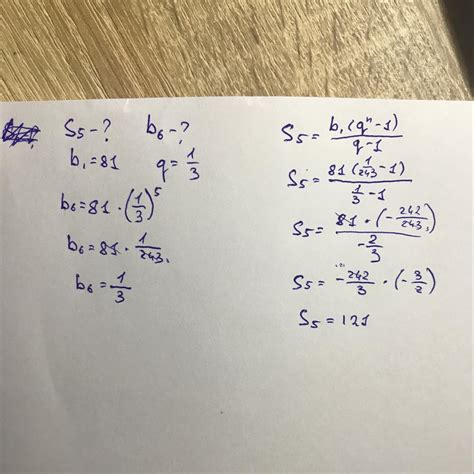 S₅ - ? b₆ - ?
b₁ = 81 q = 1/3
b₆ = 81 · (1/3)⁵
b₆ = 81 · 1/243
b₆ = 1/3
S₅ = b₁(qⁿ-1)/q-1
S₅ = 81(1/243 -1)/1/3 -1
S₅ = 81 · (-242/243)/-2/3
S₅ = -242/3 · (-3/2)
S₅ = 121